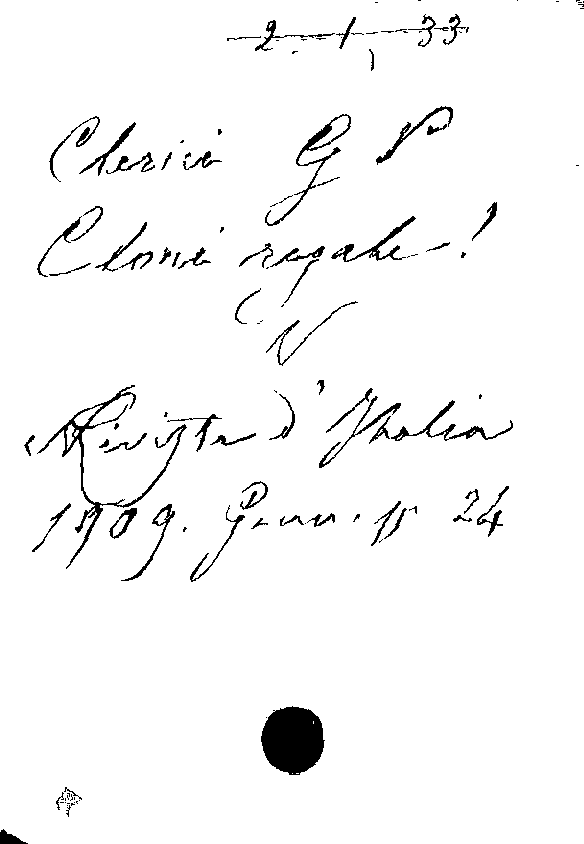 2. 1. 33
Clerici G P
Cloni regale!
V
Rivista d'Italia
1909. Genn. p 24